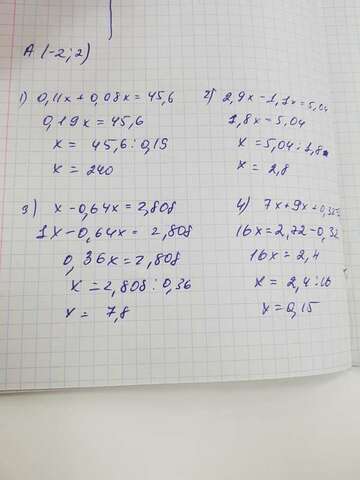 A. (-2; 2)
1) 0,11x + 0,08x = 45,6
0,19x = 45,6
x = 45,6 : 0,19
x = 240
2) 2,9x - 1,1x = 5,04
1,8x = 5,04
x = 5,04 : 1,8
x = 2,8
3) x - 0,64x = 2,808
1x - 0,64x = 2,808
0,36x = 2,808
x = 2,808 : 0,36
x = 7,8
4) 7x + 9x + 0,32
16x = 2,72 - 0,32
16x = 2,4
x = 2,4 : 16
x = 0,15